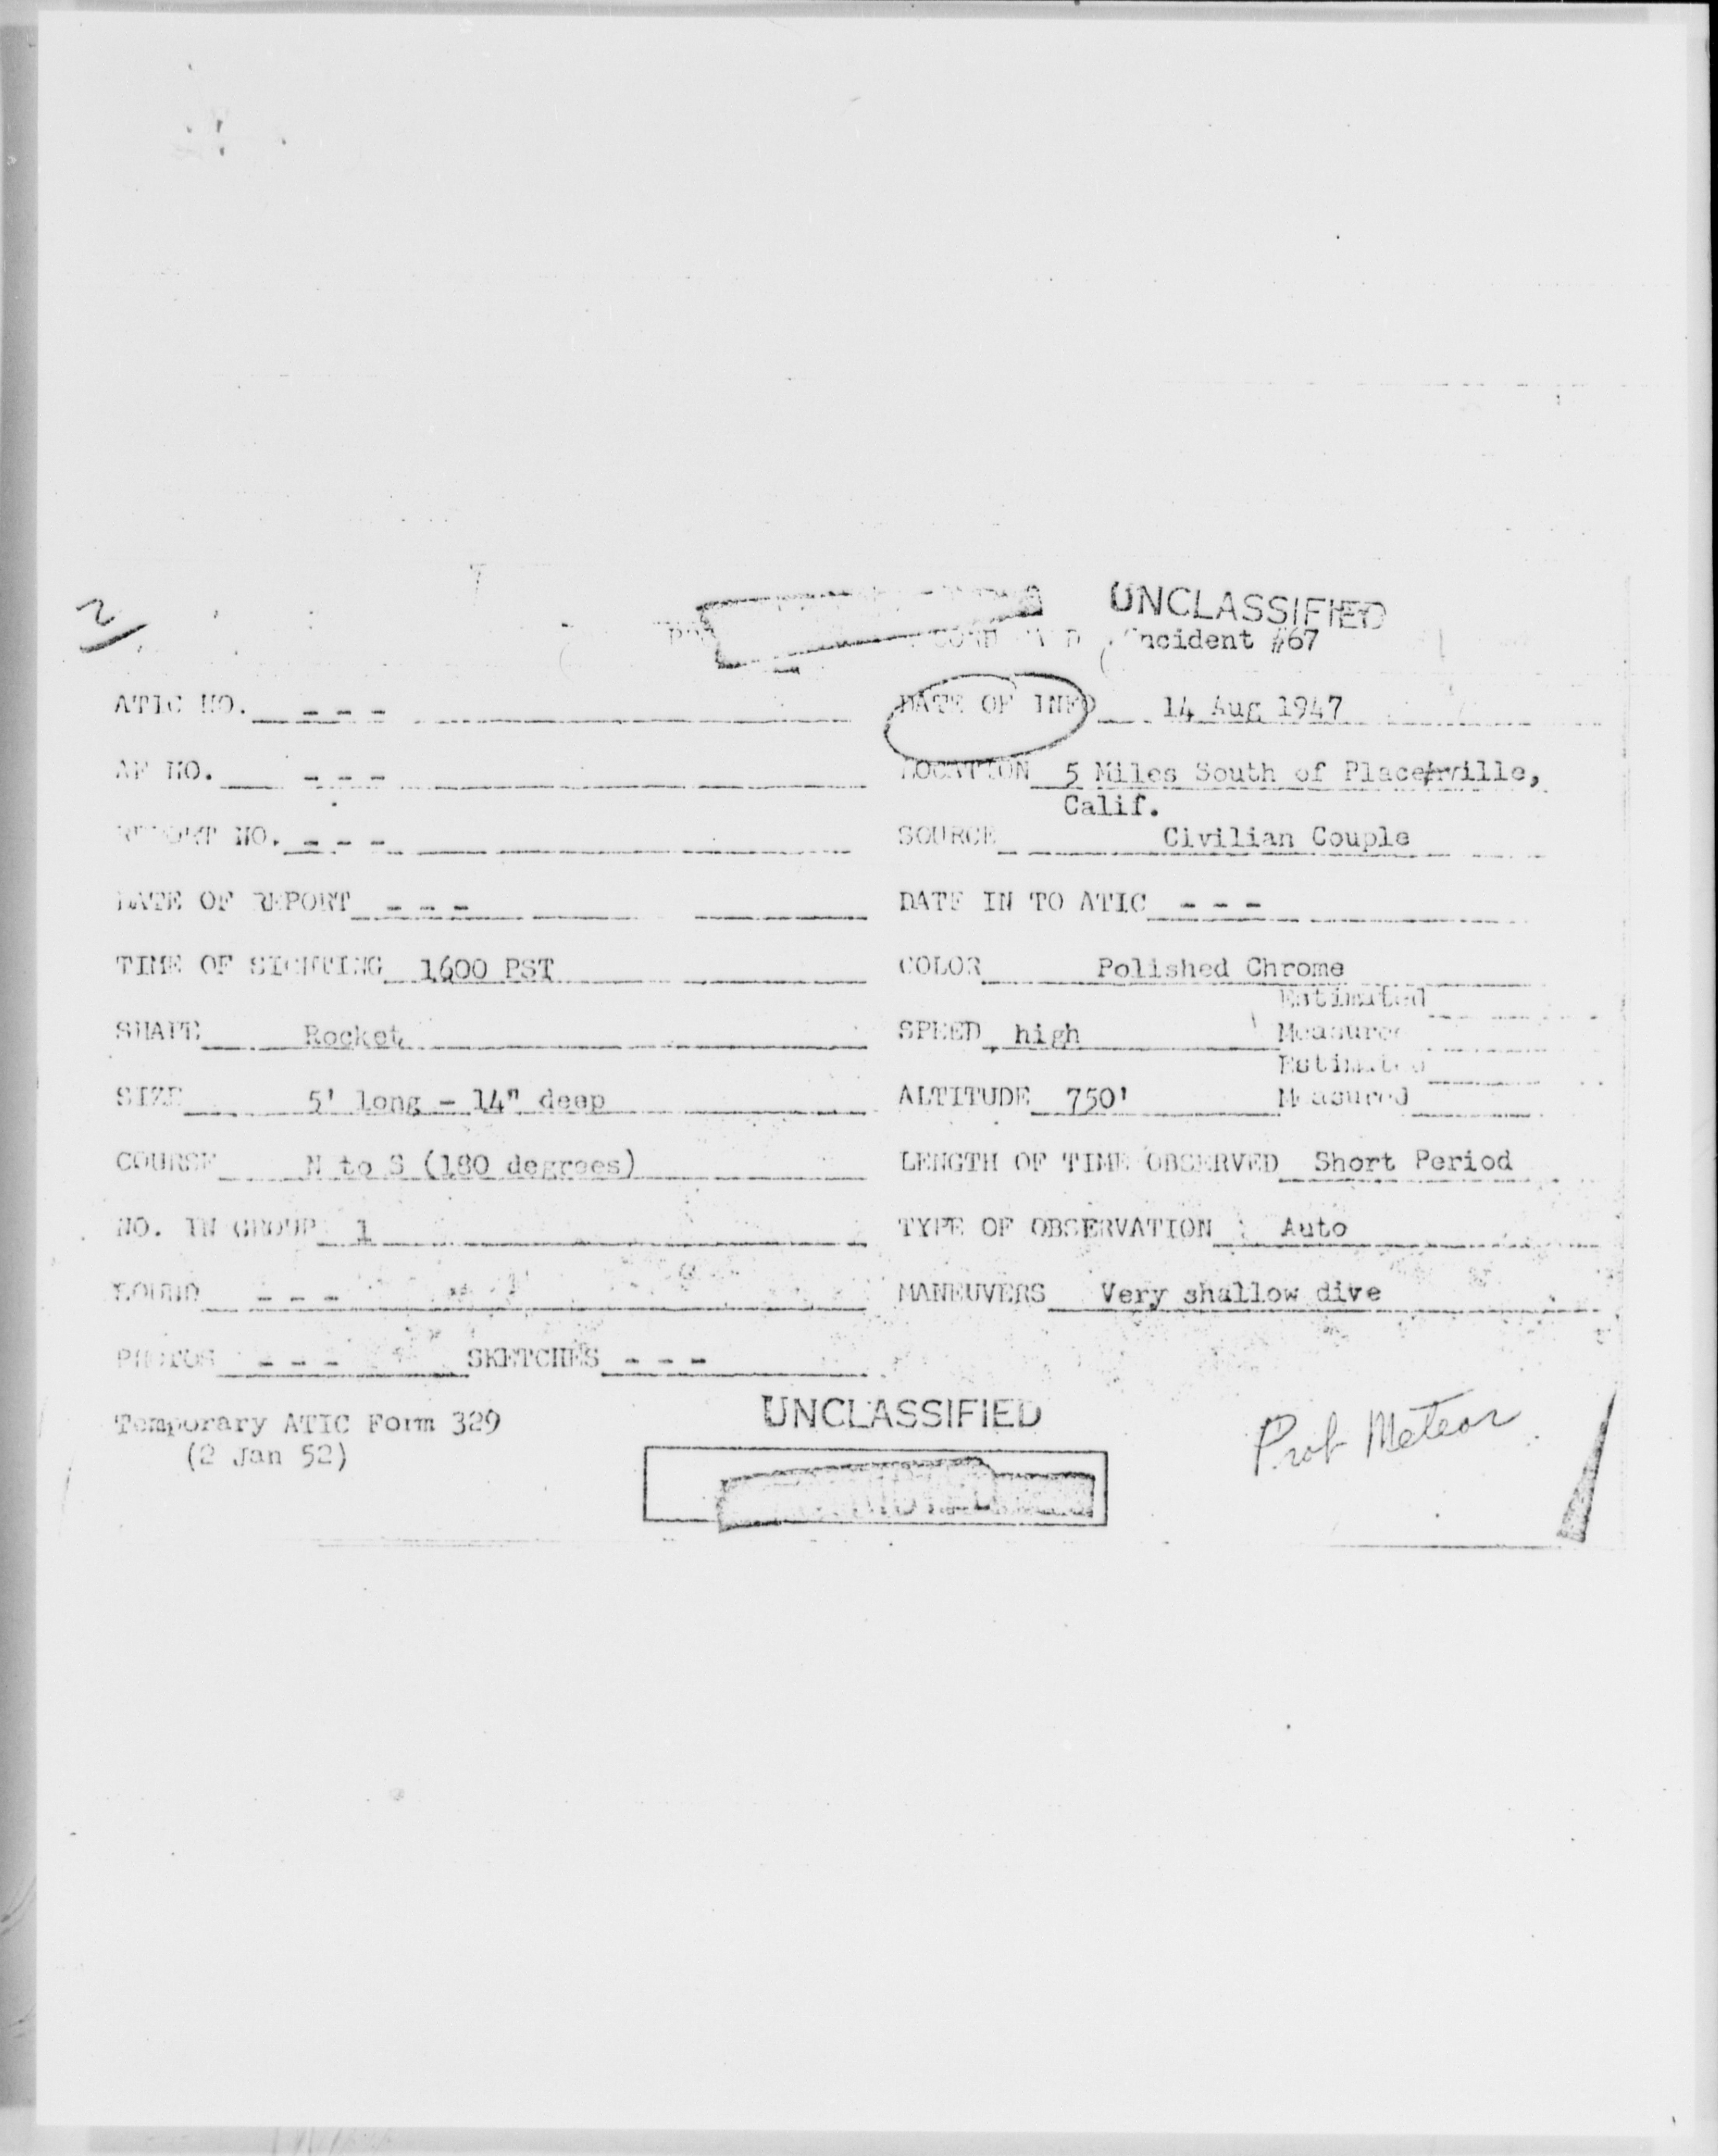 UNCLASSIFIED
Incident #67
ATIC NO. - - - DATE OF INFO 14 Aug 1947
AF NO. - - - LOCATION 5 Miles South of Placerville,
Calif.
REPORT NO. - - - SOURCE Civilian Couple
DATE OF REPORT - - - DATE IN TO ATIC - - -
TIME OF SIGHTING 1600 PST COLOR Polished Chrome
Estimated
SHAPE Rocket SPEED high Measured
Estimated
SIZE 5' long - 14" deep ALTITUDE 750' Measured
COURSE N to S (180 degrees) LENGTH OF TIME OBSERVED Short Period
NO. IN GROUP 1 TYPE OF OBSERVATION Auto
SOUND - - - MANEUVERS Very shallow dive
PHOTOS - - - SKETCHES - - -
UNCLASSIFIED
Temporary ATIC Form 329
(2 Jan 52)
Prob Meteor